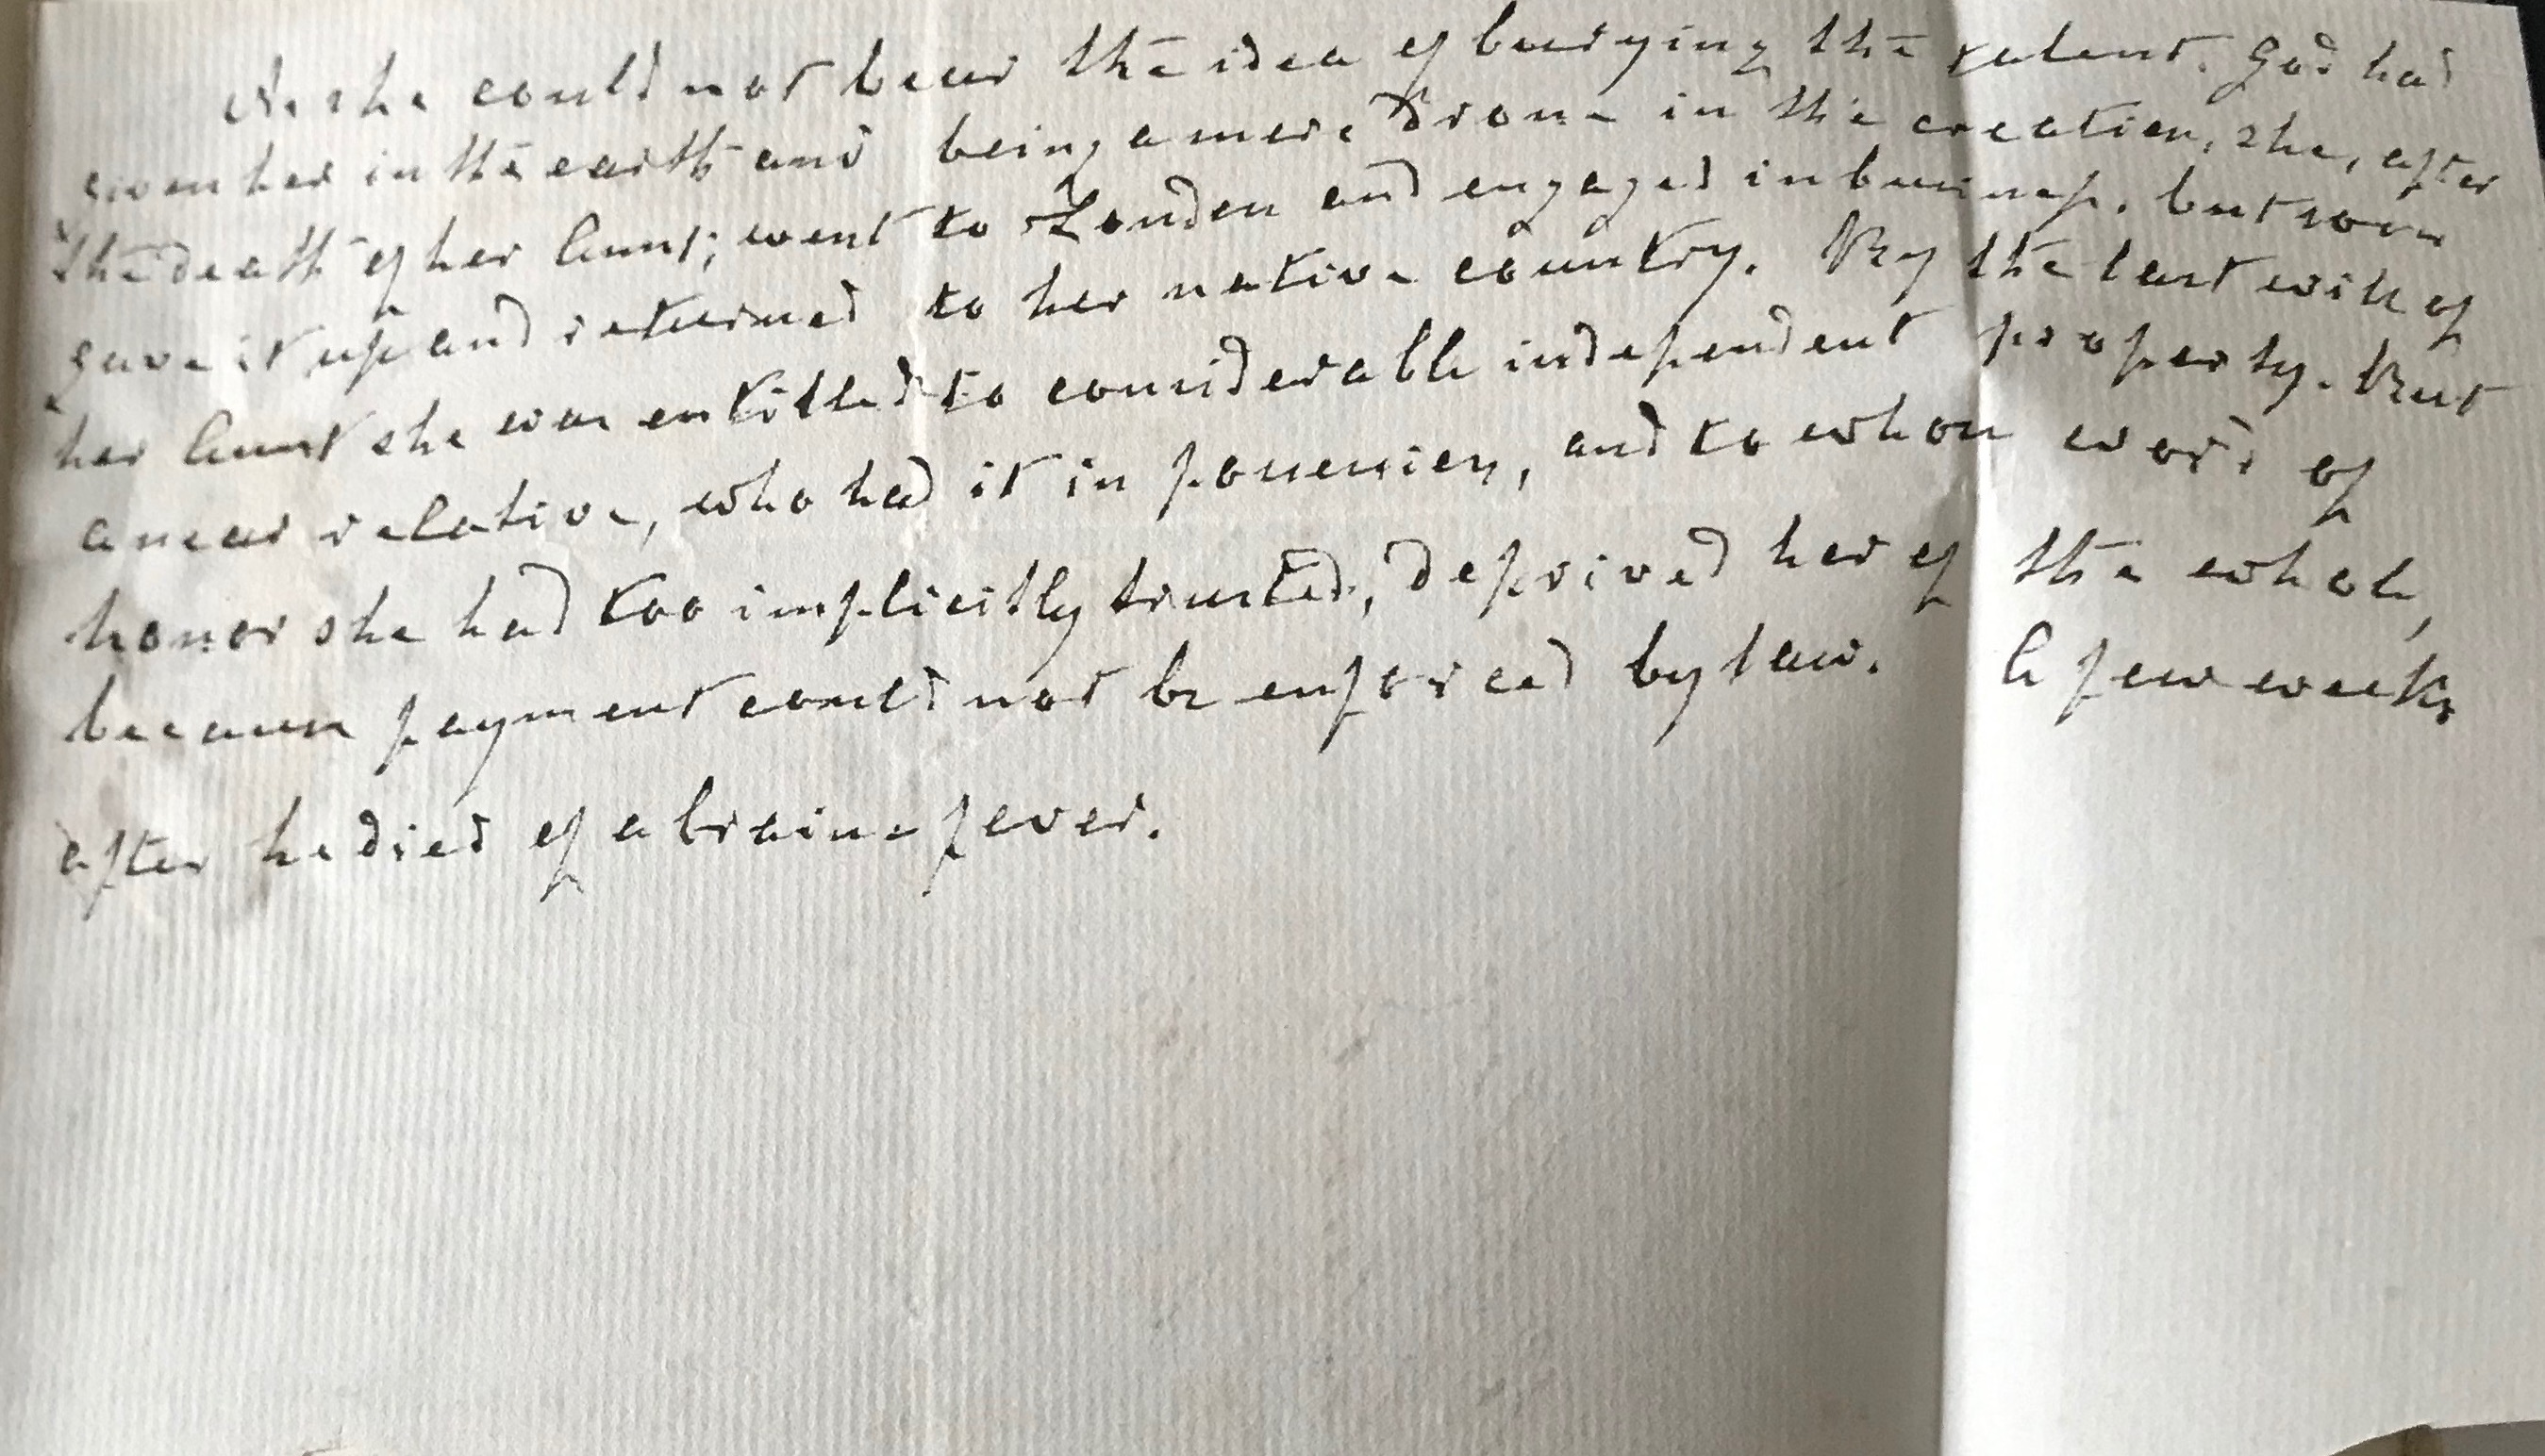 As she could not bear the idea of burying the talent. God had
given her in the earth and being a mere drone in the creation, she, after
the death of her Aunt; went to London and engaged in business. but soon
gave it up and returned to her native country. By the last will of
her Aunt she was entitled to considerable independent property. But
a near relative, who had it in possession, and to whose word of
honor she had too implicitly trusted, deprived her of the whole,
because payment could not be enforced by law. A few weeks
after he died of a braine fever.